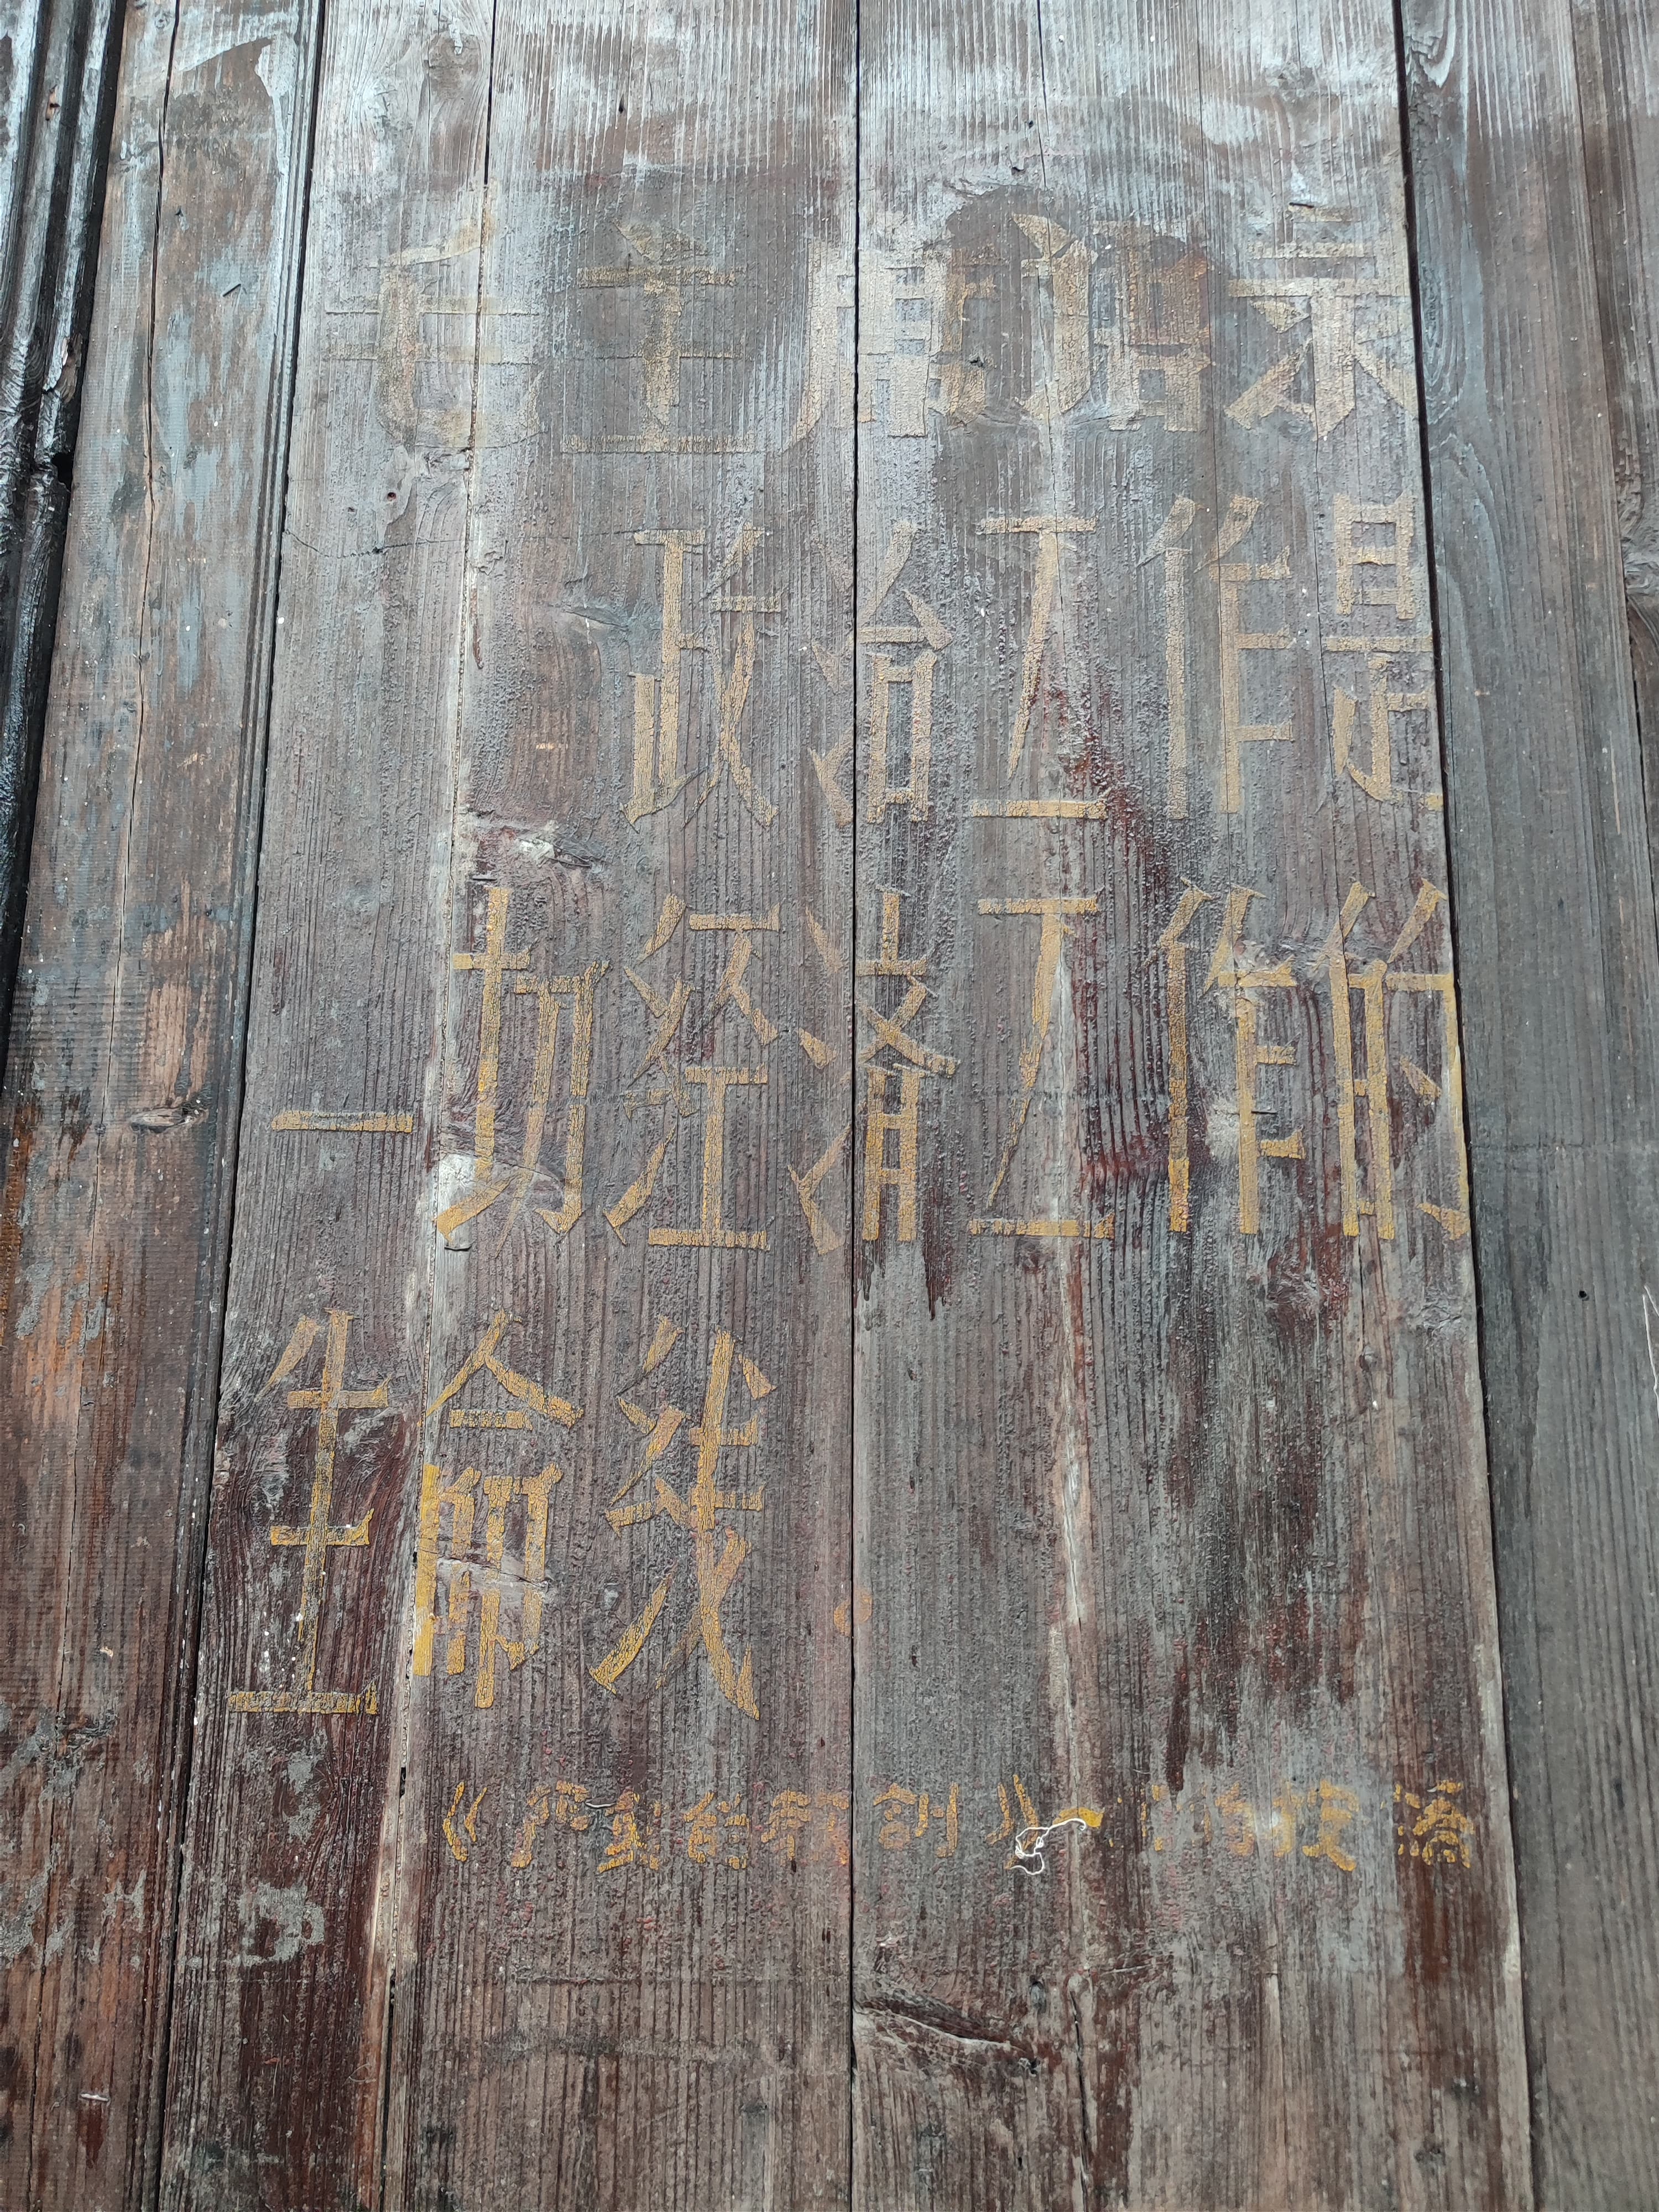 毛主席语录
政治工作是
一切经济工作的
生命线
《严重的教训》一文的按语